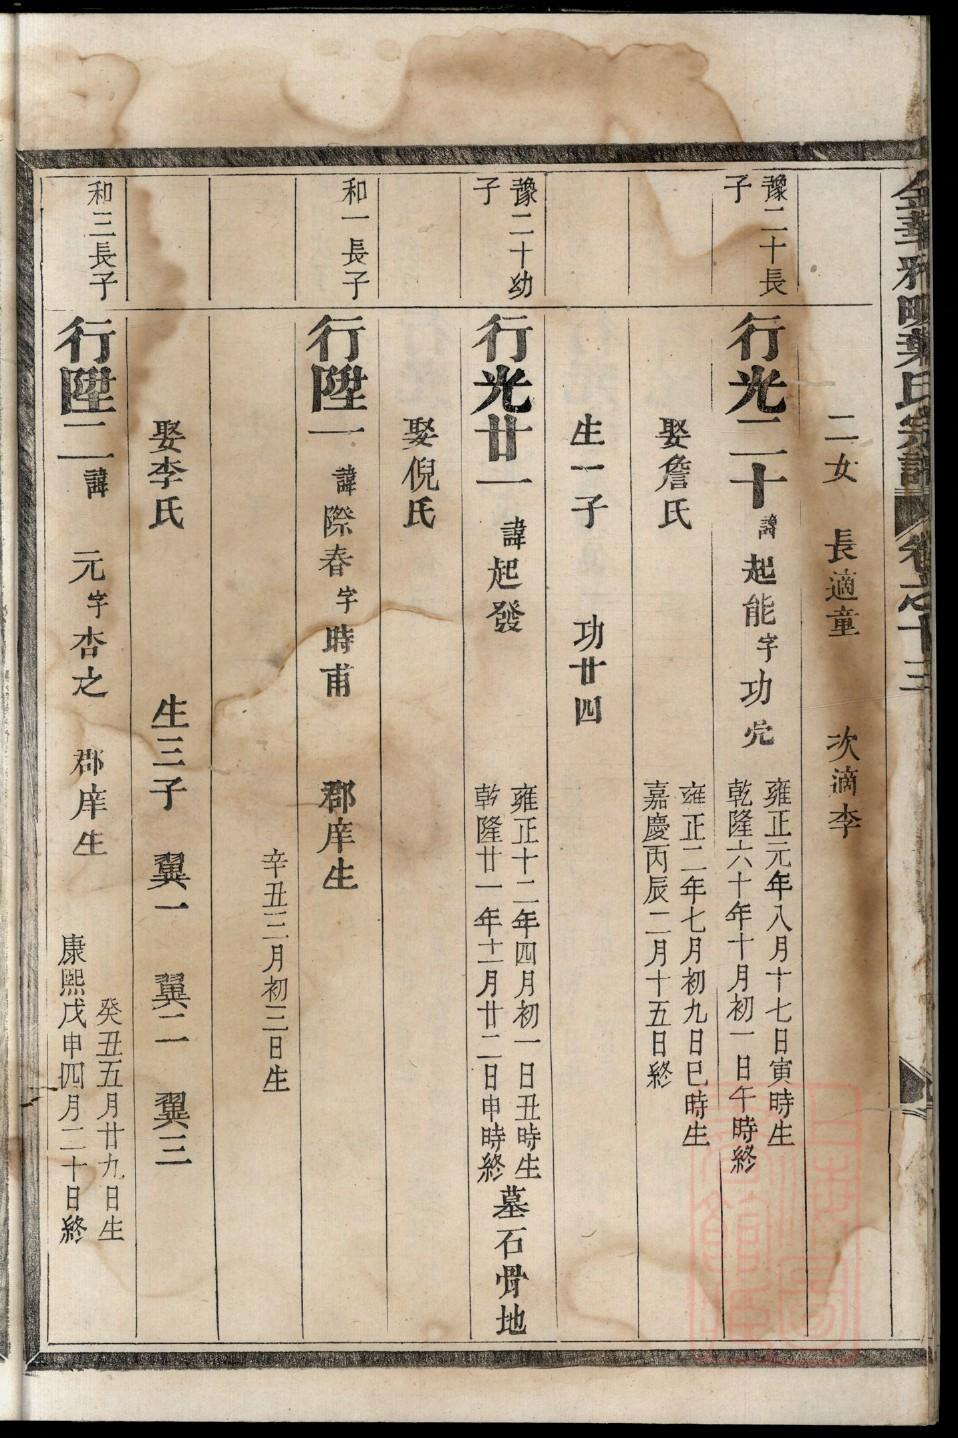 金華雅畈葉氏宗譜 卷之十三
二女 長適童 次適李
豫二十長子
行光二十 諱起能字功完 雍正元年八月十七日寅時生
乾隆六十年十月初一日午時終
娶詹氏 雍正二年七月初九日巳時生
嘉慶丙辰二月十五日終
生一子 功廿四
豫二十幼子
行光廿一 諱起發 雍正十二年四月初一日丑時生
乾隆廿一年十一月廿二日申時終
墓石骨地
娶倪氏
和一長子
行陞一 諱際春字時甫 郡庠生
辛丑三月初三日生
娶李氏 生三子 翼一 翼二 翼三
和三長子
行陞二 諱元字杏之 郡庠生 癸丑五月廿九日生
康熙戊申四月二十日終